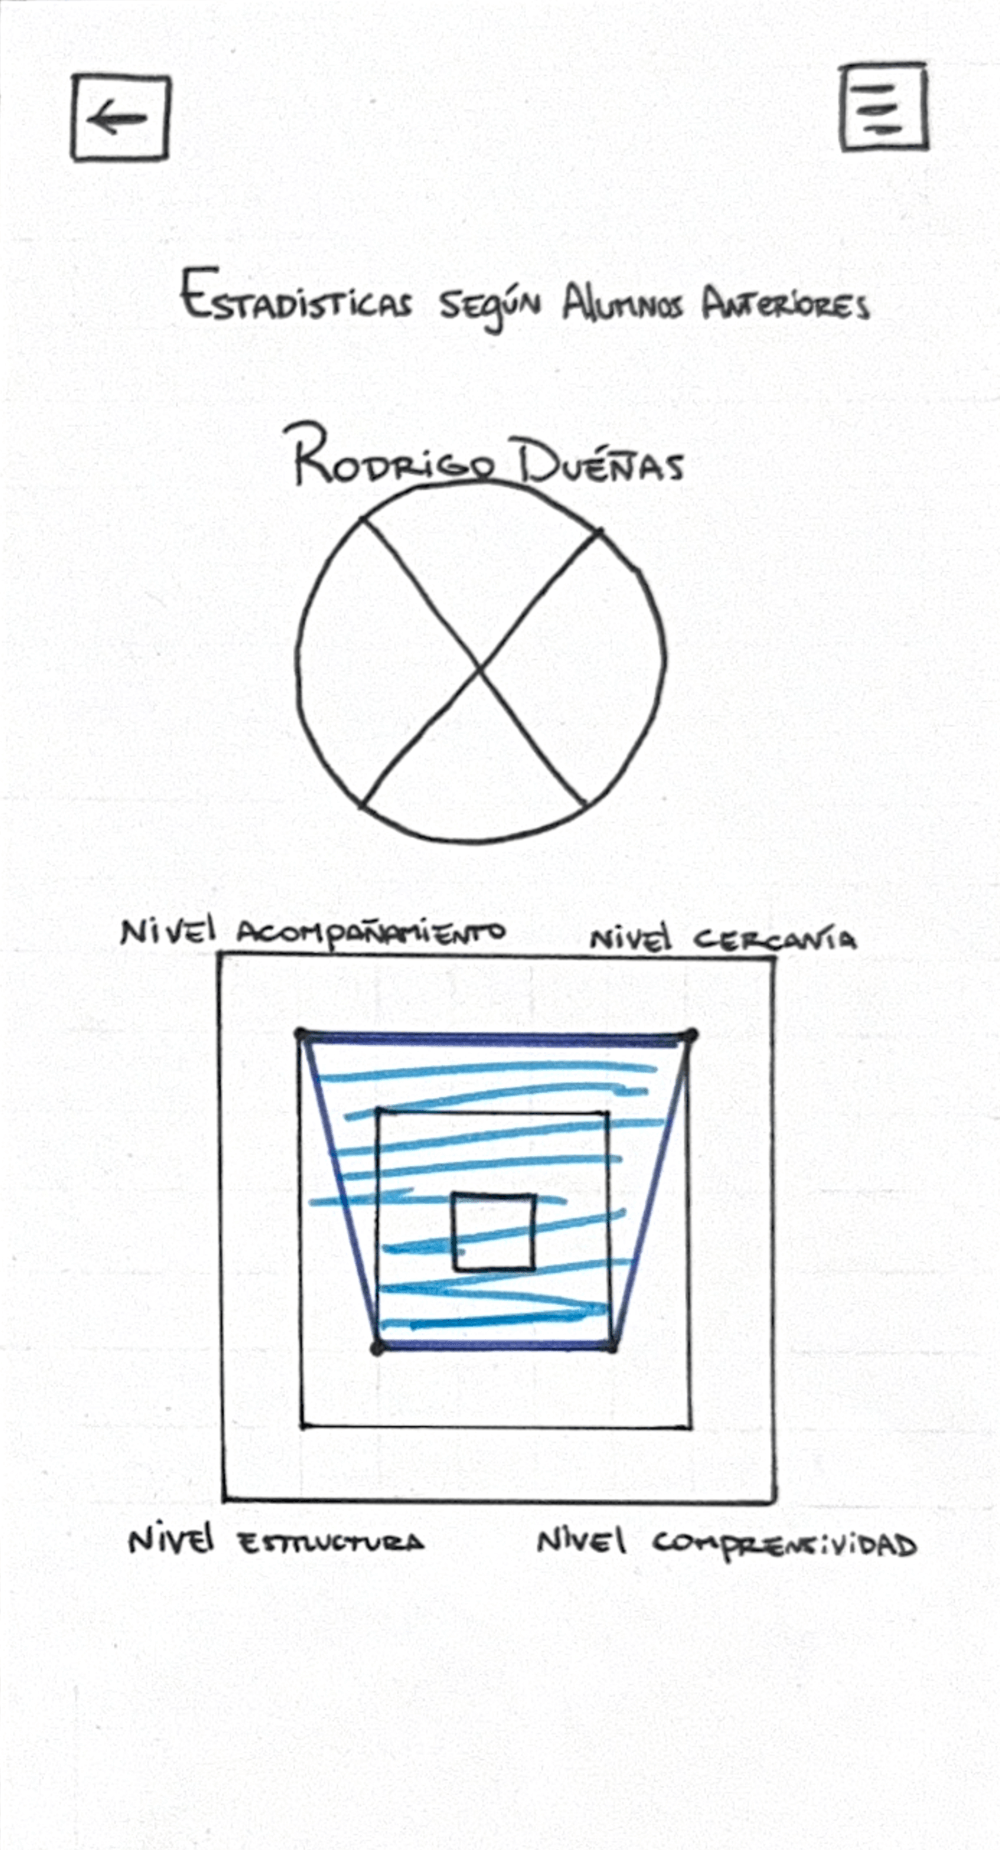 ESTADISTICAS SEGÚN ALUMNOS ANTERIORES
RODRIGO DUEÑAS
NIVEL ACOMPAÑAMIENTO NIVEL CERCANÍA
NIVEL ESTRUCTURA NIVEL COMPRENSIVIDAD